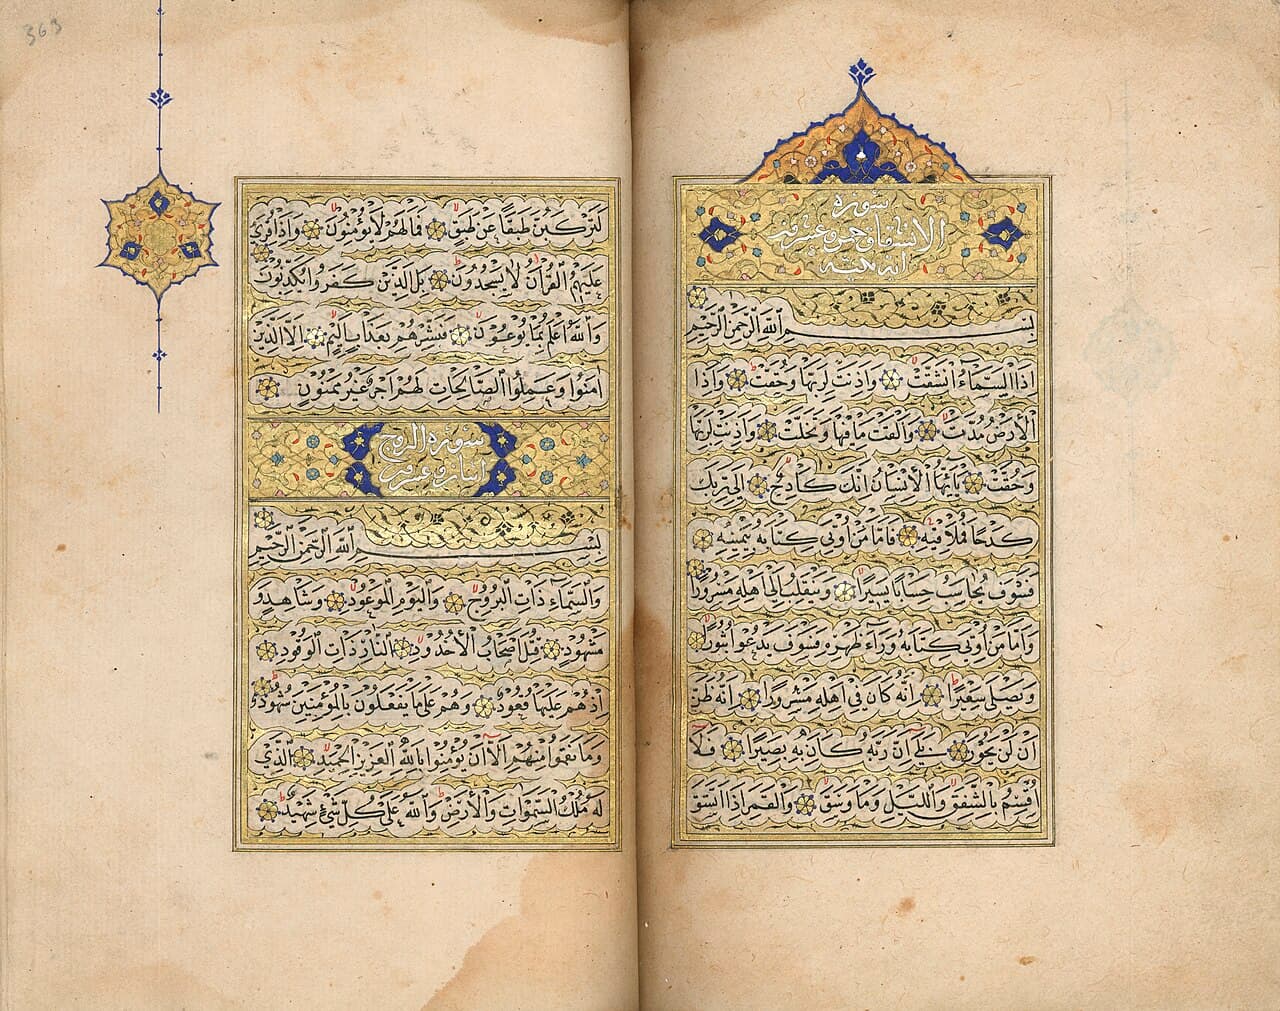 سورة
الانشقاق خمس وعشرون
آية مكية
بِسْمِ اللَّهِ الرَّحْمَنِ الرَّحِيمِ
اِذَا السَّمَاءُ انْشَقَّتْ وَاَذِنَتْ لِرَبِّهَا وَحُقَّتْ وَاِذَا
الْاَرْضُ مُدَّتْ وَاَلْقَتْ مَا فِيهَا وَتَخَلَّتْ وَاَذِنَتْ لِرَبِّهَا
وَحُقَّتْ يَا اَيُّهَا الْاِنْسَانُ اِنَّكَ كَادِحٌ اِلَى رَبِّكَ
كَدْحًا فَمُلَاقِيهِ فَاَمَّا مَنْ اُوتِيَ كِتَابَهُ بِيَمِينِهِ
فَسَوْفَ يُحَاسَبُ حِسَابًا يَسِيرًا وَيَنْقَلِبُ اِلَى اَهْلِهِ مَسْرُورًا
وَاَمَّا مَنْ اُوتِيَ كِتَابَهُ وَرَاءَ ظَهْرِهِ فَسَوْفَ يَدْعُوا ثُبُورًا
وَيَصْلَى سَعِيرًا اِنَّهُ كَانَ فِي اَهْلِهِ مَسْرُورًا اِنَّهُ ظَنَّ
اَنْ لَنْ يَحُورَ بَلَى اِنَّ رَبَّهُ كَانَ بِهِ بَصِيرًا فَلَا
اُقْسِمُ بِالشَّفَقِ وَاللَّيْلِ وَمَا وَسَقَ وَالْقَمَرِ اِذَا اتَّسَقَ
363
لَتَرْكَبُنَّ طَبَقًا عَنْ طَبَقٍ فَمَا لَهُمْ لَا يُؤْمِنُونَ وَاِذَا قُرِئَ
عَلَيْهِمُ الْقُرْآنُ لَا يَسْجُدُونَ بَلِ الَّذِينَ كَفَرُوا يُكَذِّبُونَ
وَاللَّهُ اَعْلَمُ بِمَا يُوعُونَ فَبَشِّرْهُمْ بِعَذَابٍ اَلِيمٍ اِلَّا الَّذِينَ
اٰمَنُوا وَعَمِلُوا الصَّالِحَاتِ لَهُمْ اَجْرٌ غَيْرُ مَمْنُونٍ
سورة البروج
وعشرون
بِسْمِ اللَّهِ الرَّحْمَنِ الرَّحِيمِ
وَالسَّمَاءِ ذَاتِ الْبُرُوجِ وَالْيَوْمِ الْمَوْعُودِ وَشَاهِدٍ وَ
مَشْهُودٍ قُتِلَ اَصْحَابُ الْاُخْدُودِ النَّارِ ذَاتِ الْوَقُودِ
اِذْ هُمْ عَلَيْهَا قُعُودٌ وَهُمْ عَلَى مَا يَفْعَلُونَ بِالْمُؤْمِنِينَ شُهُودٌ
وَمَا نَقَمُوا مِنْهُمْ اِلَّا اَنْ يُؤْمِنُوا بِاللَّهِ الْعَزِيزِ الْحَمِيدِ الَّذِي
لَهُ مُلْكُ السَّمٰوَاتِ وَالْاَرْضِ وَاللَّهُ عَلَى كُلِّ شَيْءٍ شَهِيدٌ